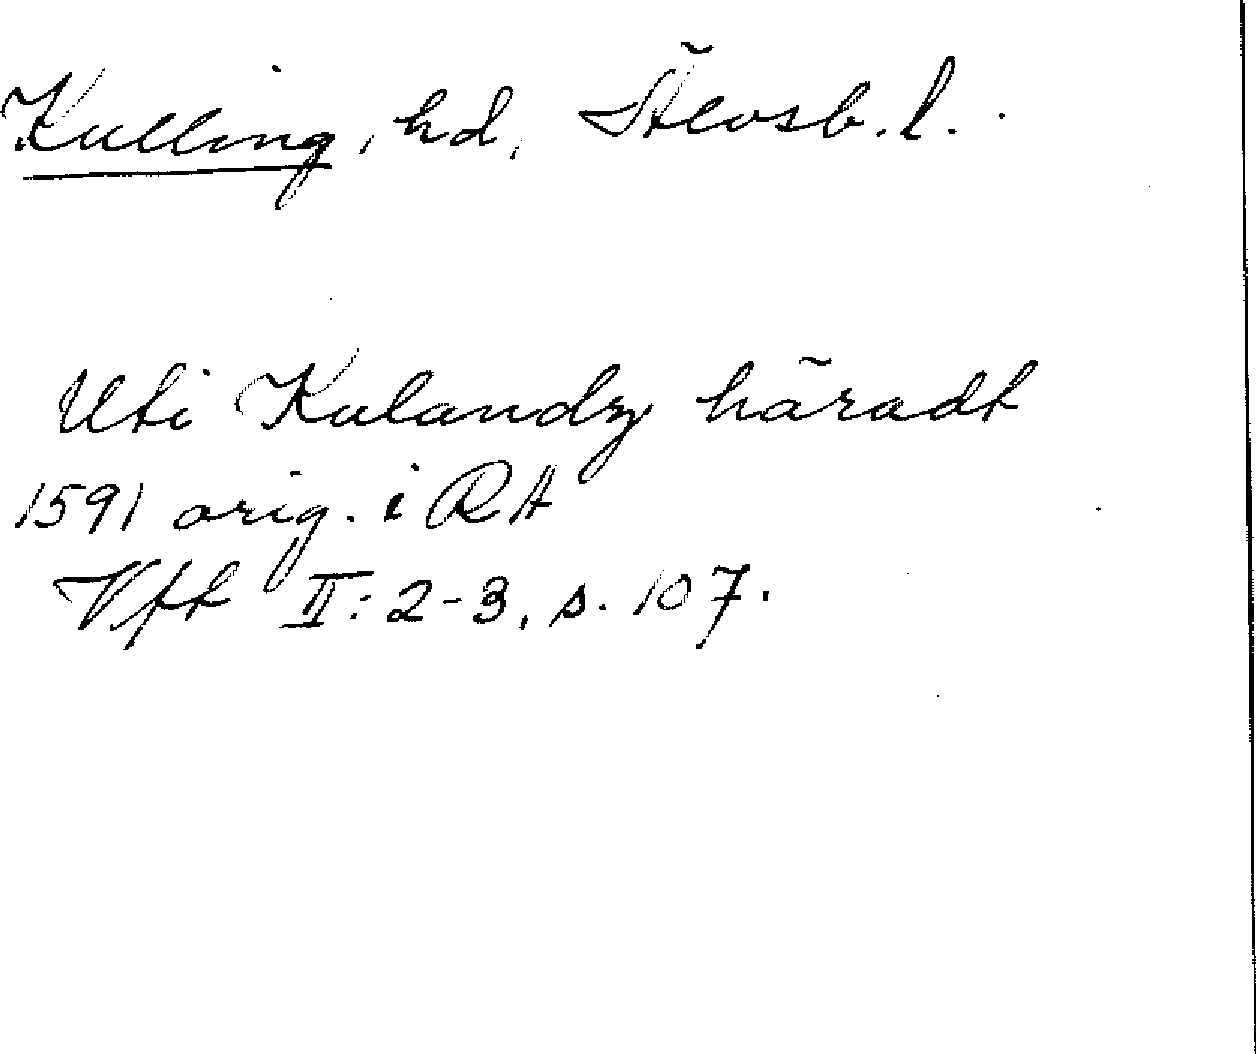 Kulling, hd, Älvsb. l.
Uti Kulandz häradt
1591 orig. i RA
Vft II: 2-3, s. 107.